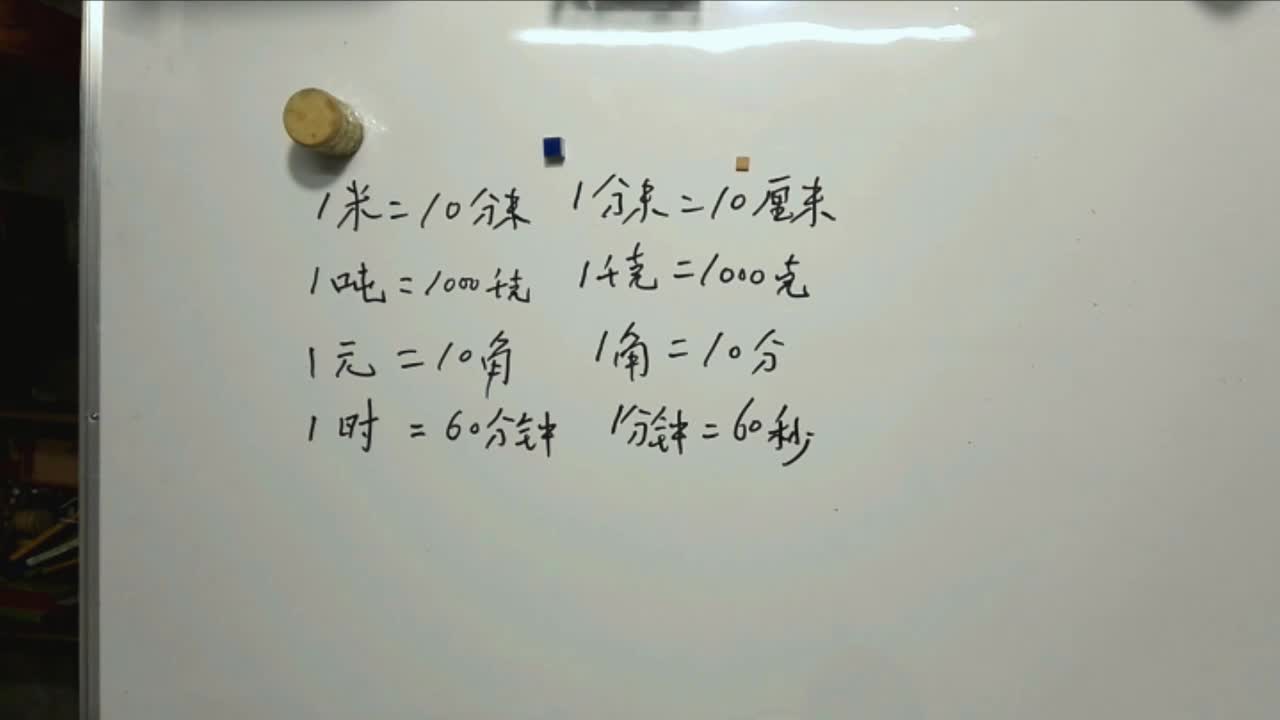 1米=10分米 1分米=10厘米
1吨=1000千克 1千克=1000克
1元=10角 1角=10分
1时=60分钟 1分钟=60秒